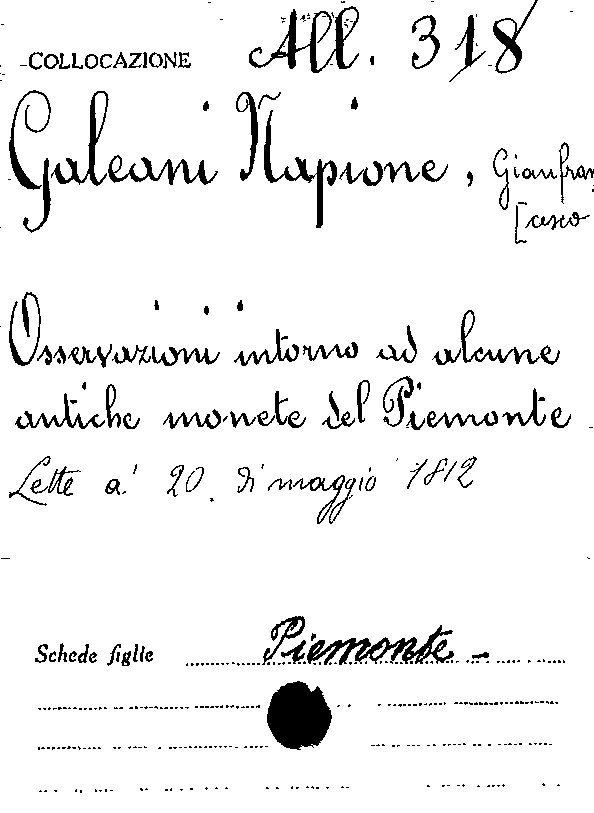 COLLOCAZIONE All. 318
Galeani Napione, Gianfran
[cesco
Osservazioni intorno ad alcune
antiche monete del Piemonte
Lette a' 20. di maggio 1812
Schede figlie Piemonte -